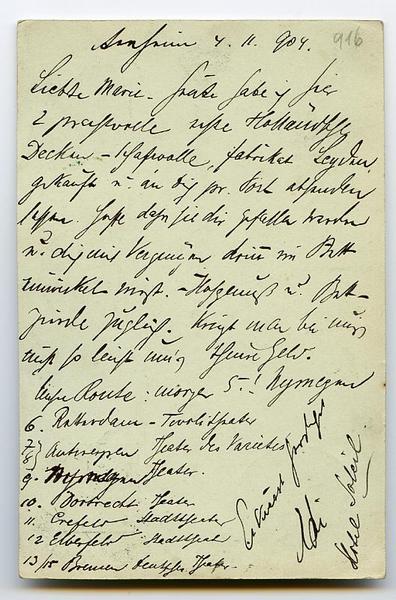 Arnheim 4. 11. 904. 916
Liebste Marie - heute habe ich hier
2 prachtvolle echte Holländische
Decken - Schafwolle, fabrikat Leyden,
gekauft u. an dich pr. Post absenden
lassen. Hoffe dass sie dir gefallen werden
u. dich mit Vergnügen drin im Bett
einwickeln wirst. - Hochgenuß u. Bett-
zugleich. Kriegt man bei uns
nicht so leicht um's theure Geld.
Unsere Route: morgen 5.! Nymegen
6. Rotterdam - Tivolitheater
7/8 } Antwerpen Theater des Varietés
9. Theater.
10. Dortrecht Theater
11. Crefeld Stadttheater
12 Elberfeld Stadttheat
13/15 Bremen Deutsches Theater.
Hotel Soleil